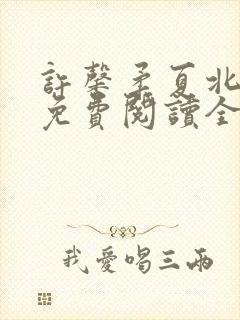 許馨矛夏北
免費閱讀全
我愛唱三兩